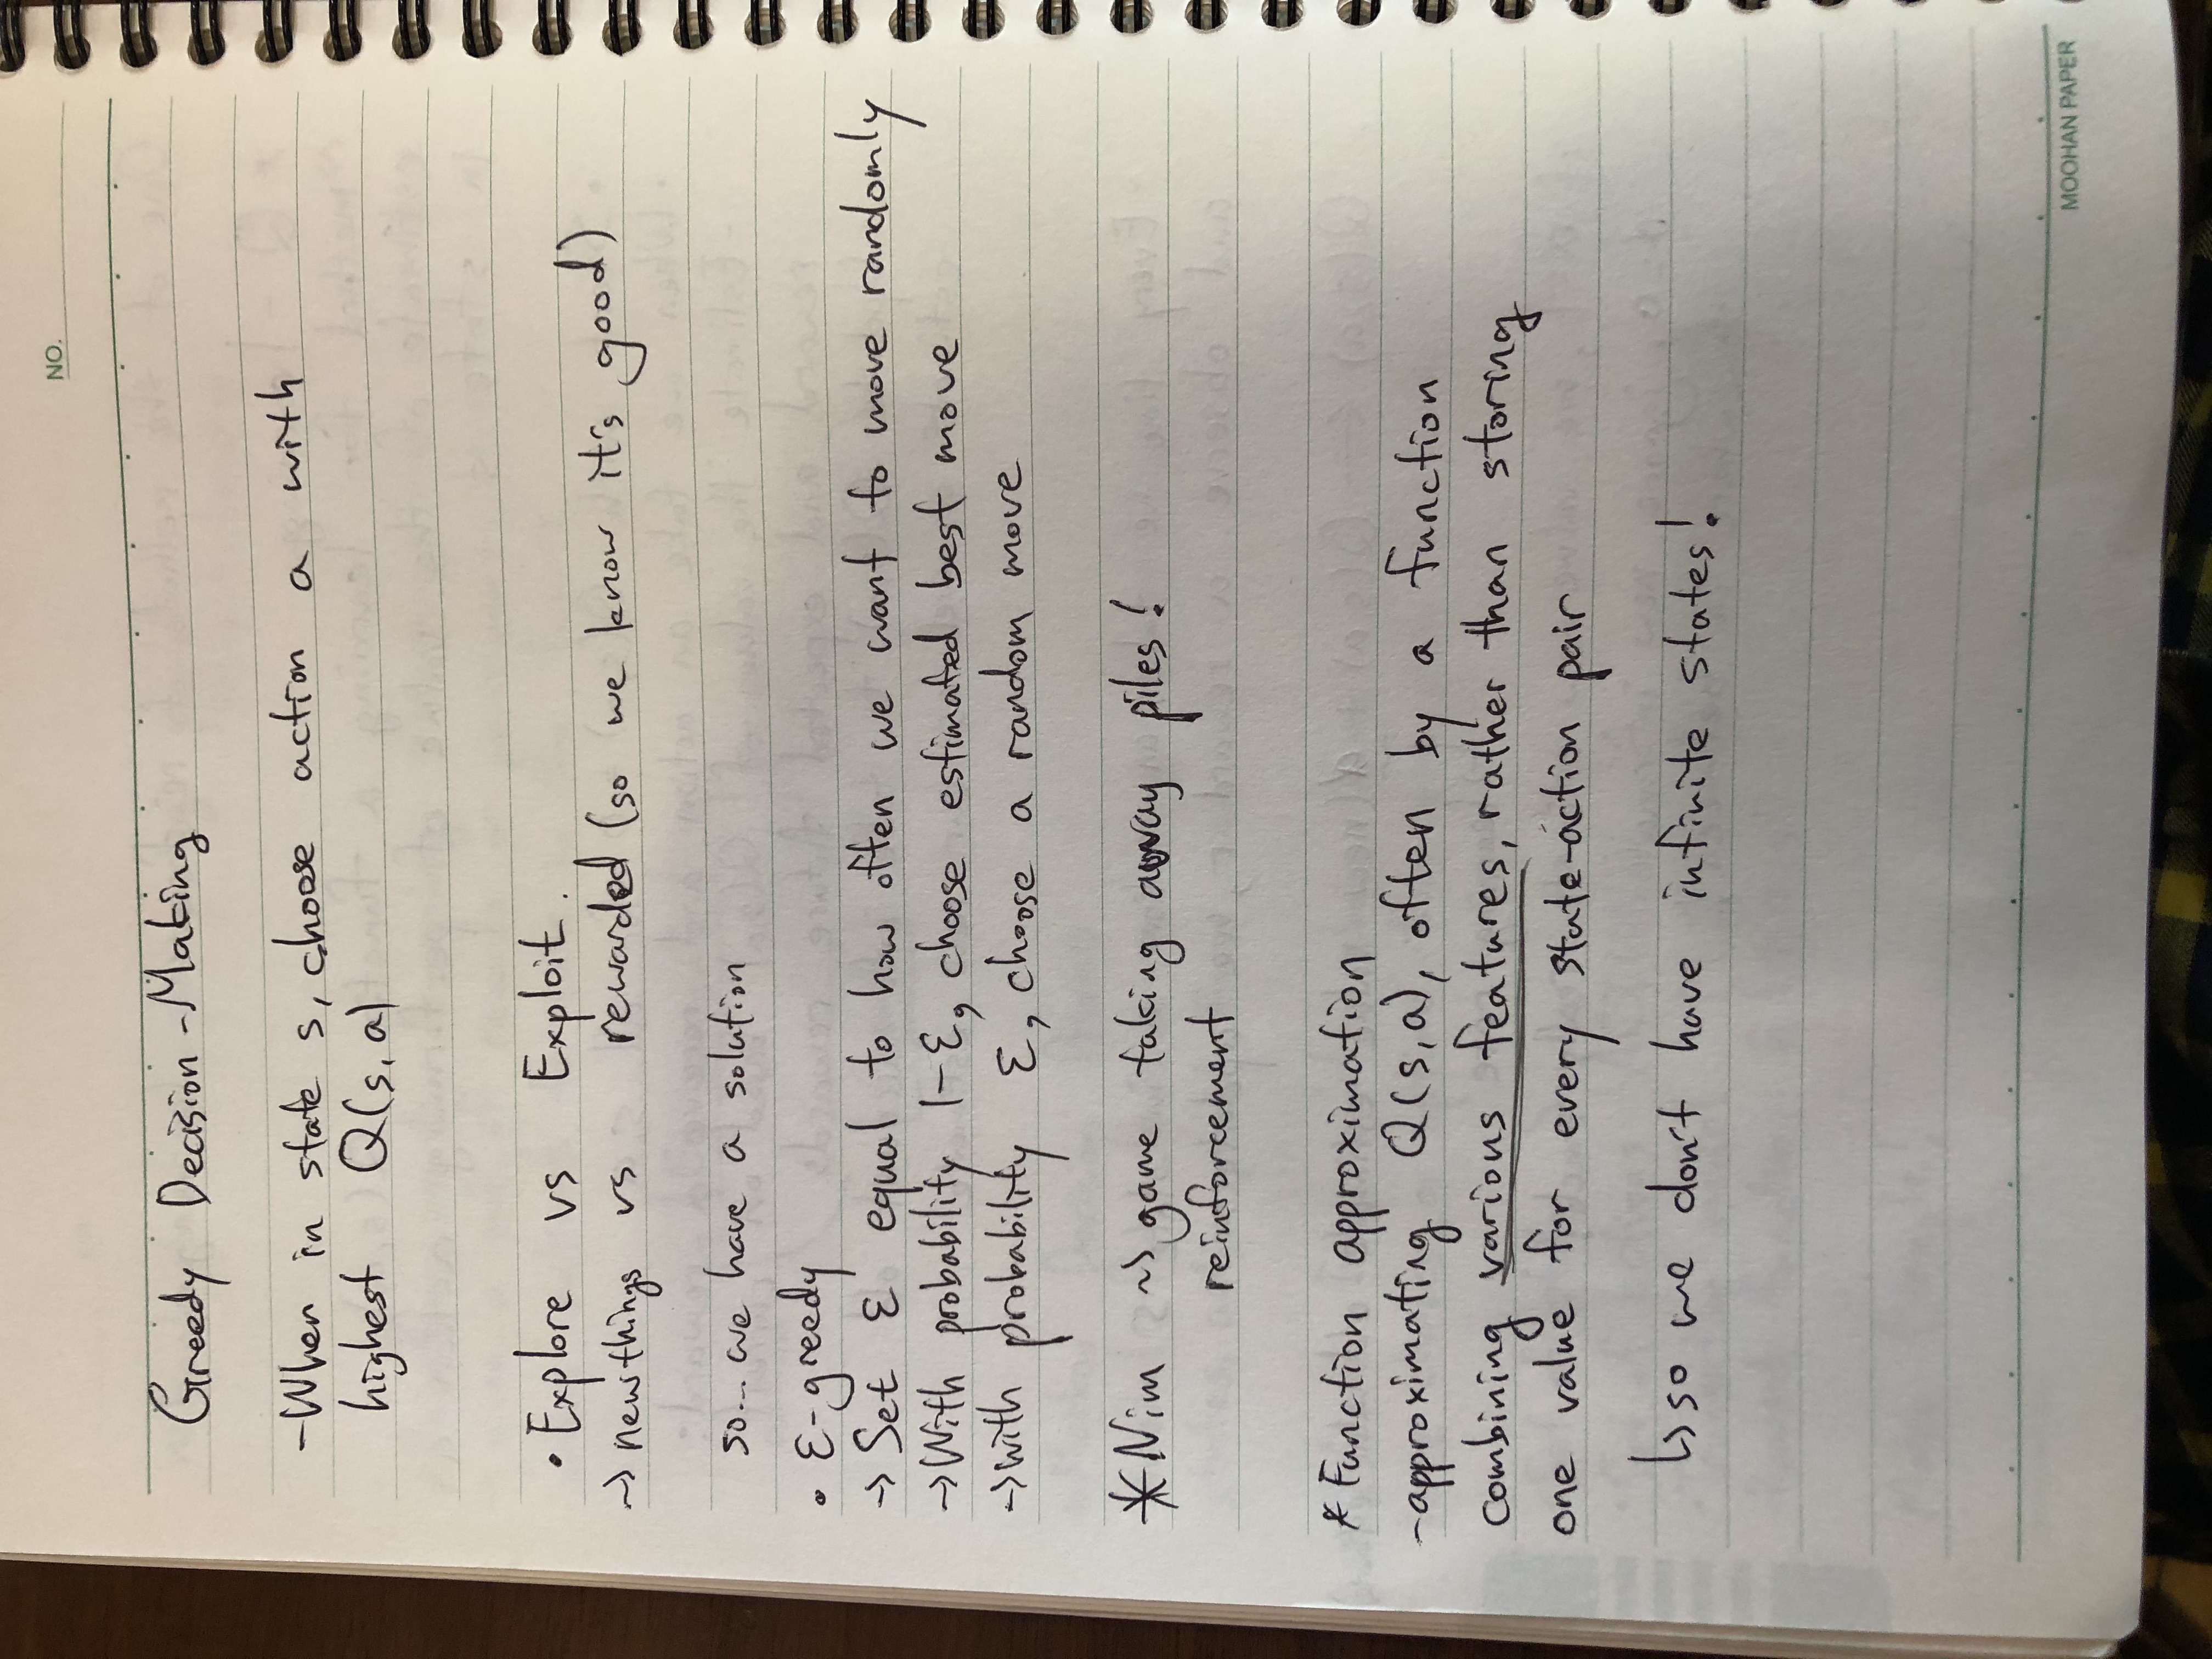 NO.
Greedy Decision-Making
-When in state s, choose action a with
highest Q(s,a)
• Explore vs Exploit.
~> new things vs rewarded (so we know it's good)
so... we have a solution
• ε-greedy
-> Set ε equal to how often we want to move randomly
-> With probability 1-ε, choose estimated best move
-> with probability ε, choose a random move
* Nim ~> game taking away piles!
reinforcement
* Function approximation
-approximating Q(s,a), often by a function
combining various features, rather than storing
one value for every state-action pair
↳ so we don't have infinite states!
MOOHAN PAPER